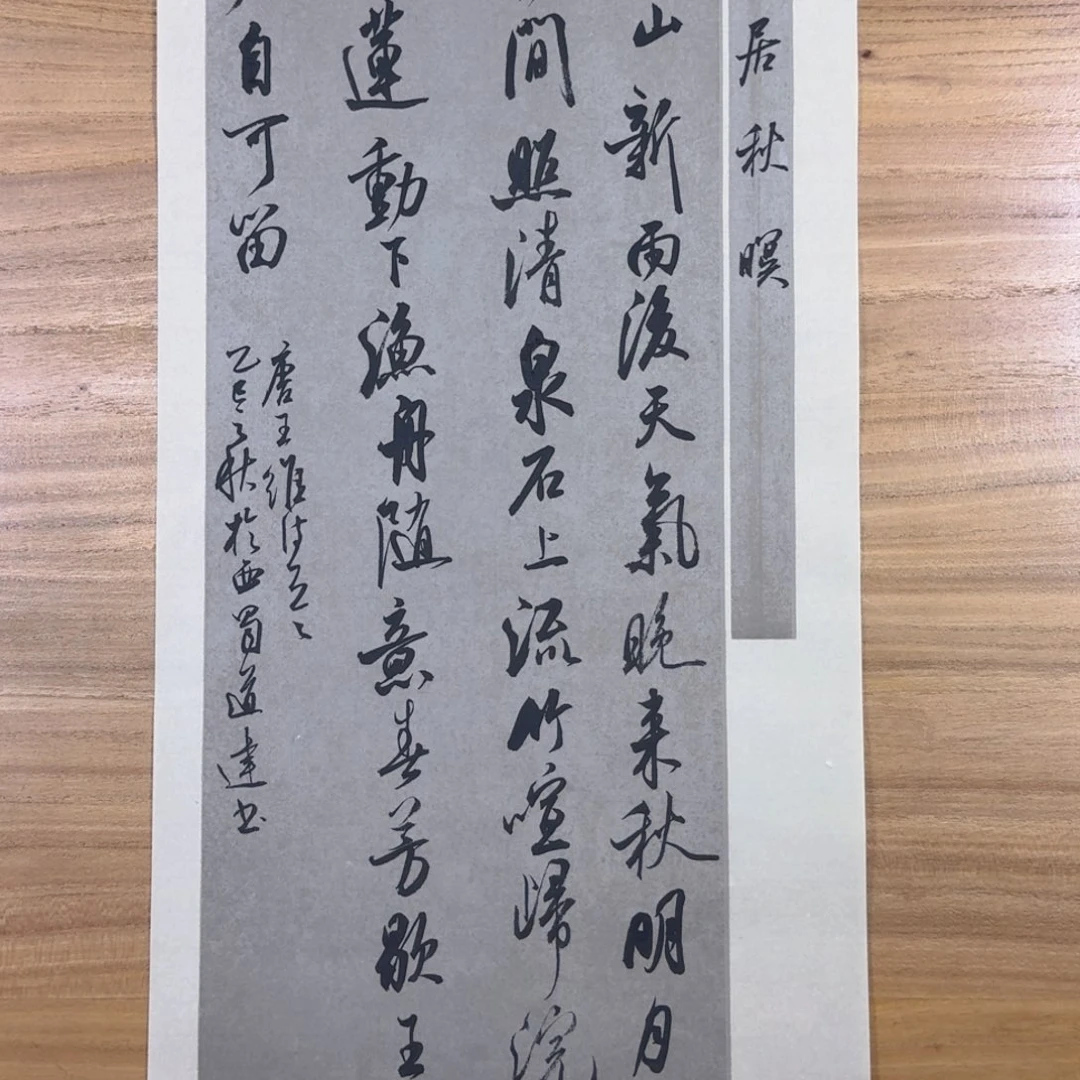 居秋暝
山新雨後天氣晚来秋明月
間照清泉石上流竹喧歸浣
蓮動下漁舟随意春芳歇王
自可留
唐王維诗一首
乙巳之秋於西蜀道達书